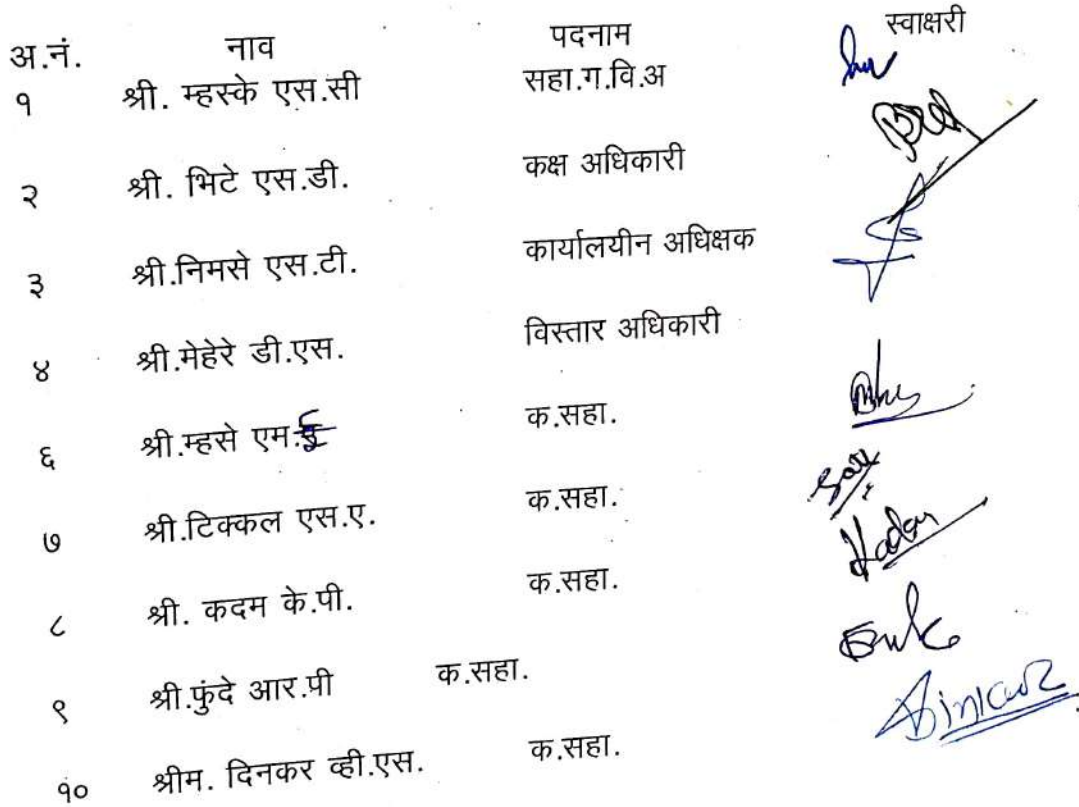 अ.नं. नाव पदनाम स्वाक्षरी
१ श्री. म्हस्के एस.सी सहा.ग.वि.अ
२ श्री. भिटे एस.डी. कक्ष अधिकारी
३ श्री.निमसे एस.टी. कार्यालयीन अधिक्षक
४ श्री.मेहेरे डी.एस. विस्तार अधिकारी
६ श्री.म्हसे एम.ई क.सहा.
७ श्री.टिक्कल एस.ए. क.सहा.
८ श्री. कदम के.पी. क.सहा. Kadam
९ श्री.फुंदे आर.पी क.सहा.
१० श्रीम. दिनकर व्ही.एस. क.सहा. Dinkar